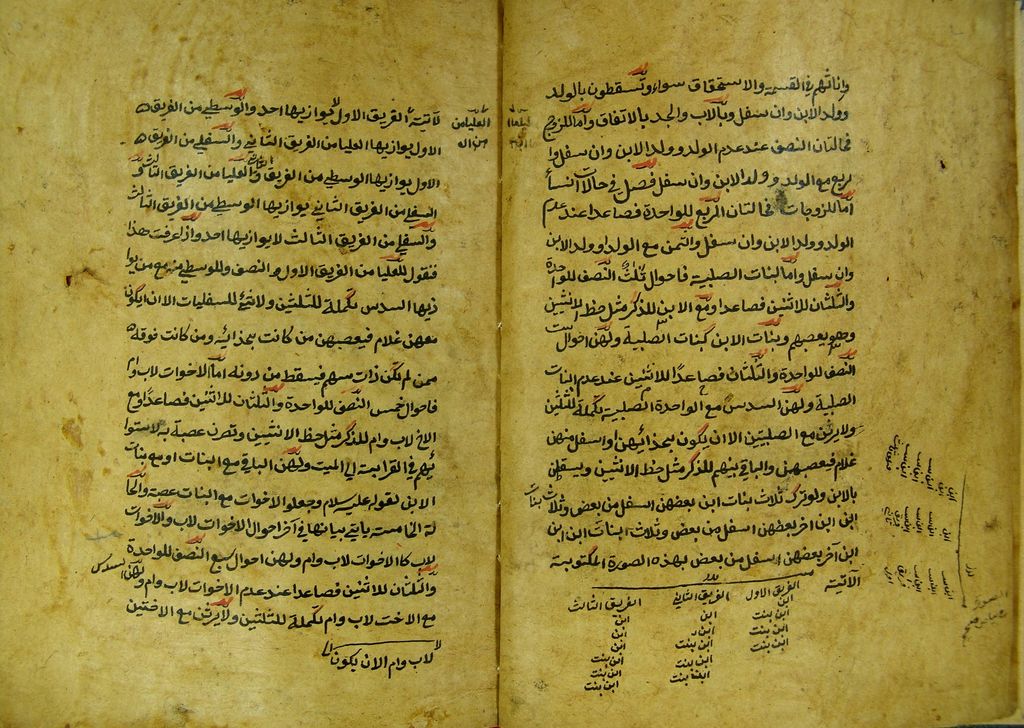 واناثهم في القسمة والاستحقاق سواء وتسقطون بالولد
وولد الابن وان سفل وبالاب والجد بالاتفاق واما للزوج
فحالتان النصف عند عدم الولد وولد الابن وان سفل وا
لربع مع الولد وولد الابن وان سفل فصل في حالات النسأ
اما للزوجات فحالتان الربع للواحدة فصاعدا عند عدم
الولد وولد الابن وان سفل والثمن مع الولد او ولد الابن
وان سفل واما لبنات الصلبية فاحوال ثلث النصف للواحدة
والثلثان للاثنتين فصاعدا ومع الابن للذكر مثل حظ الانثيين
وهو يعصبهم وبنات الابن كبنات الصلبية ولهن احوال ست
النصف للواحدة والثلثان فصاعدا للاثنتين عند عدم البنات
الصلبية ولهن السدس مع الواحدة الصلبية تكملة للثلثين
ولا يرثن مع الصلبيتين الا ان يكون بحذائهن او اسفل منهن
غلام فيعصبهن والباقي بينهم للذكر مثل حظ الانثيين ويسقطن
بالابن ولو ترك ثلاث بنات ابن بعضهن اسفل من بعض وثلاث بنات
ابن ابن اخر بعضهن اسفل من بعض وثلاث بنات ابن ابن
ابن آخر بعضهن اسفل من بعض بهذه الصورة المكتوبة
الآتية
الفريق الاول الفريق الثاني الفريق الثالث
ابن ابن ابن
ابن بنت ابن ابن
ابن بنت ابن بنت ابن
ابن بنت ابن بنت ابن بنت
ابن بنت ابن بنت
ابن بنت
العليا من
الفريق الاول لا يوازيها احد والوسطى من الفريق
الاول يوازيها العليا من الفريق الثاني والسفلى من الفريق
الاول يوازيها الوسطى من الفريق الثاني والعليا من الفريق الثالث و
السفلى من الفريق الثاني يوازيها الوسطى من الفريق الثالث
والسفلى من الفريق الثالث لا يوازيها احد واذا عرفت هذا
فنقول للعليا من الفريق الاول النصف وللوسطى منه مع من يوا
زيها السدس تكملة للثلثين ولا شئ للسفليات الا ان يكون
معهن غلام فيعصبهن من كانت بحذائه ومن كانت فوقه
ممن لم يكن ذات سهم فيسقط من دونه اما الاخوات لاب وام
فاحوال خمس النصف للواحدة والثلثان للاثنتين فصاعدا ومع
الاخ لاب وام للذكر مثل حظ الانثيين وتصرن عصبة به لاستوا
ئهم في القرابة الى الميت ولهن الباقي مع البنات او مع بنات
الابن لقوله عليه سلام وجعلوا الاخوات مع البنات عصبة والحا
لة الخامسة يأتي بيانها في آخر احوال الاخوات لاب والاخوات
لاب كالاخوات لاب وام ولهن احوال سبع النصف للواحدة
والثلثان للاثنتين فصاعدا عند عدم الاخوات لاب وام ولهن السدس
مع الاخت لاب وام تكملة للثلثين ولا يرثن مع الاختين
لاب وام الا ان يكون